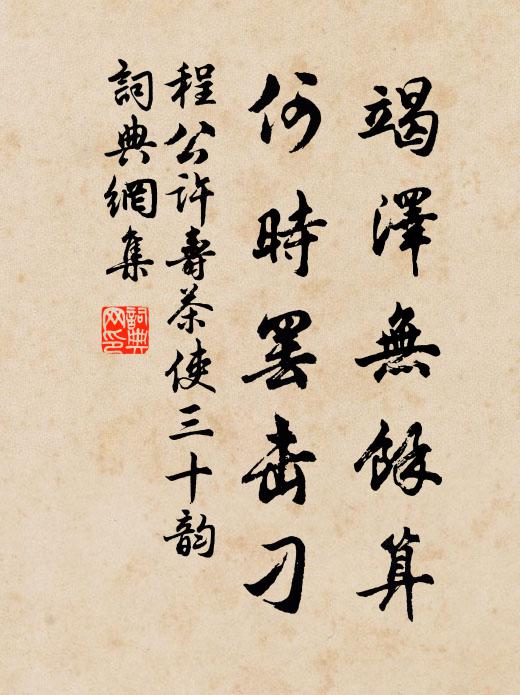 竭澤無餘算
何時罢击刁
程公许壽茶使三十韵
詞典網集
詞典网印